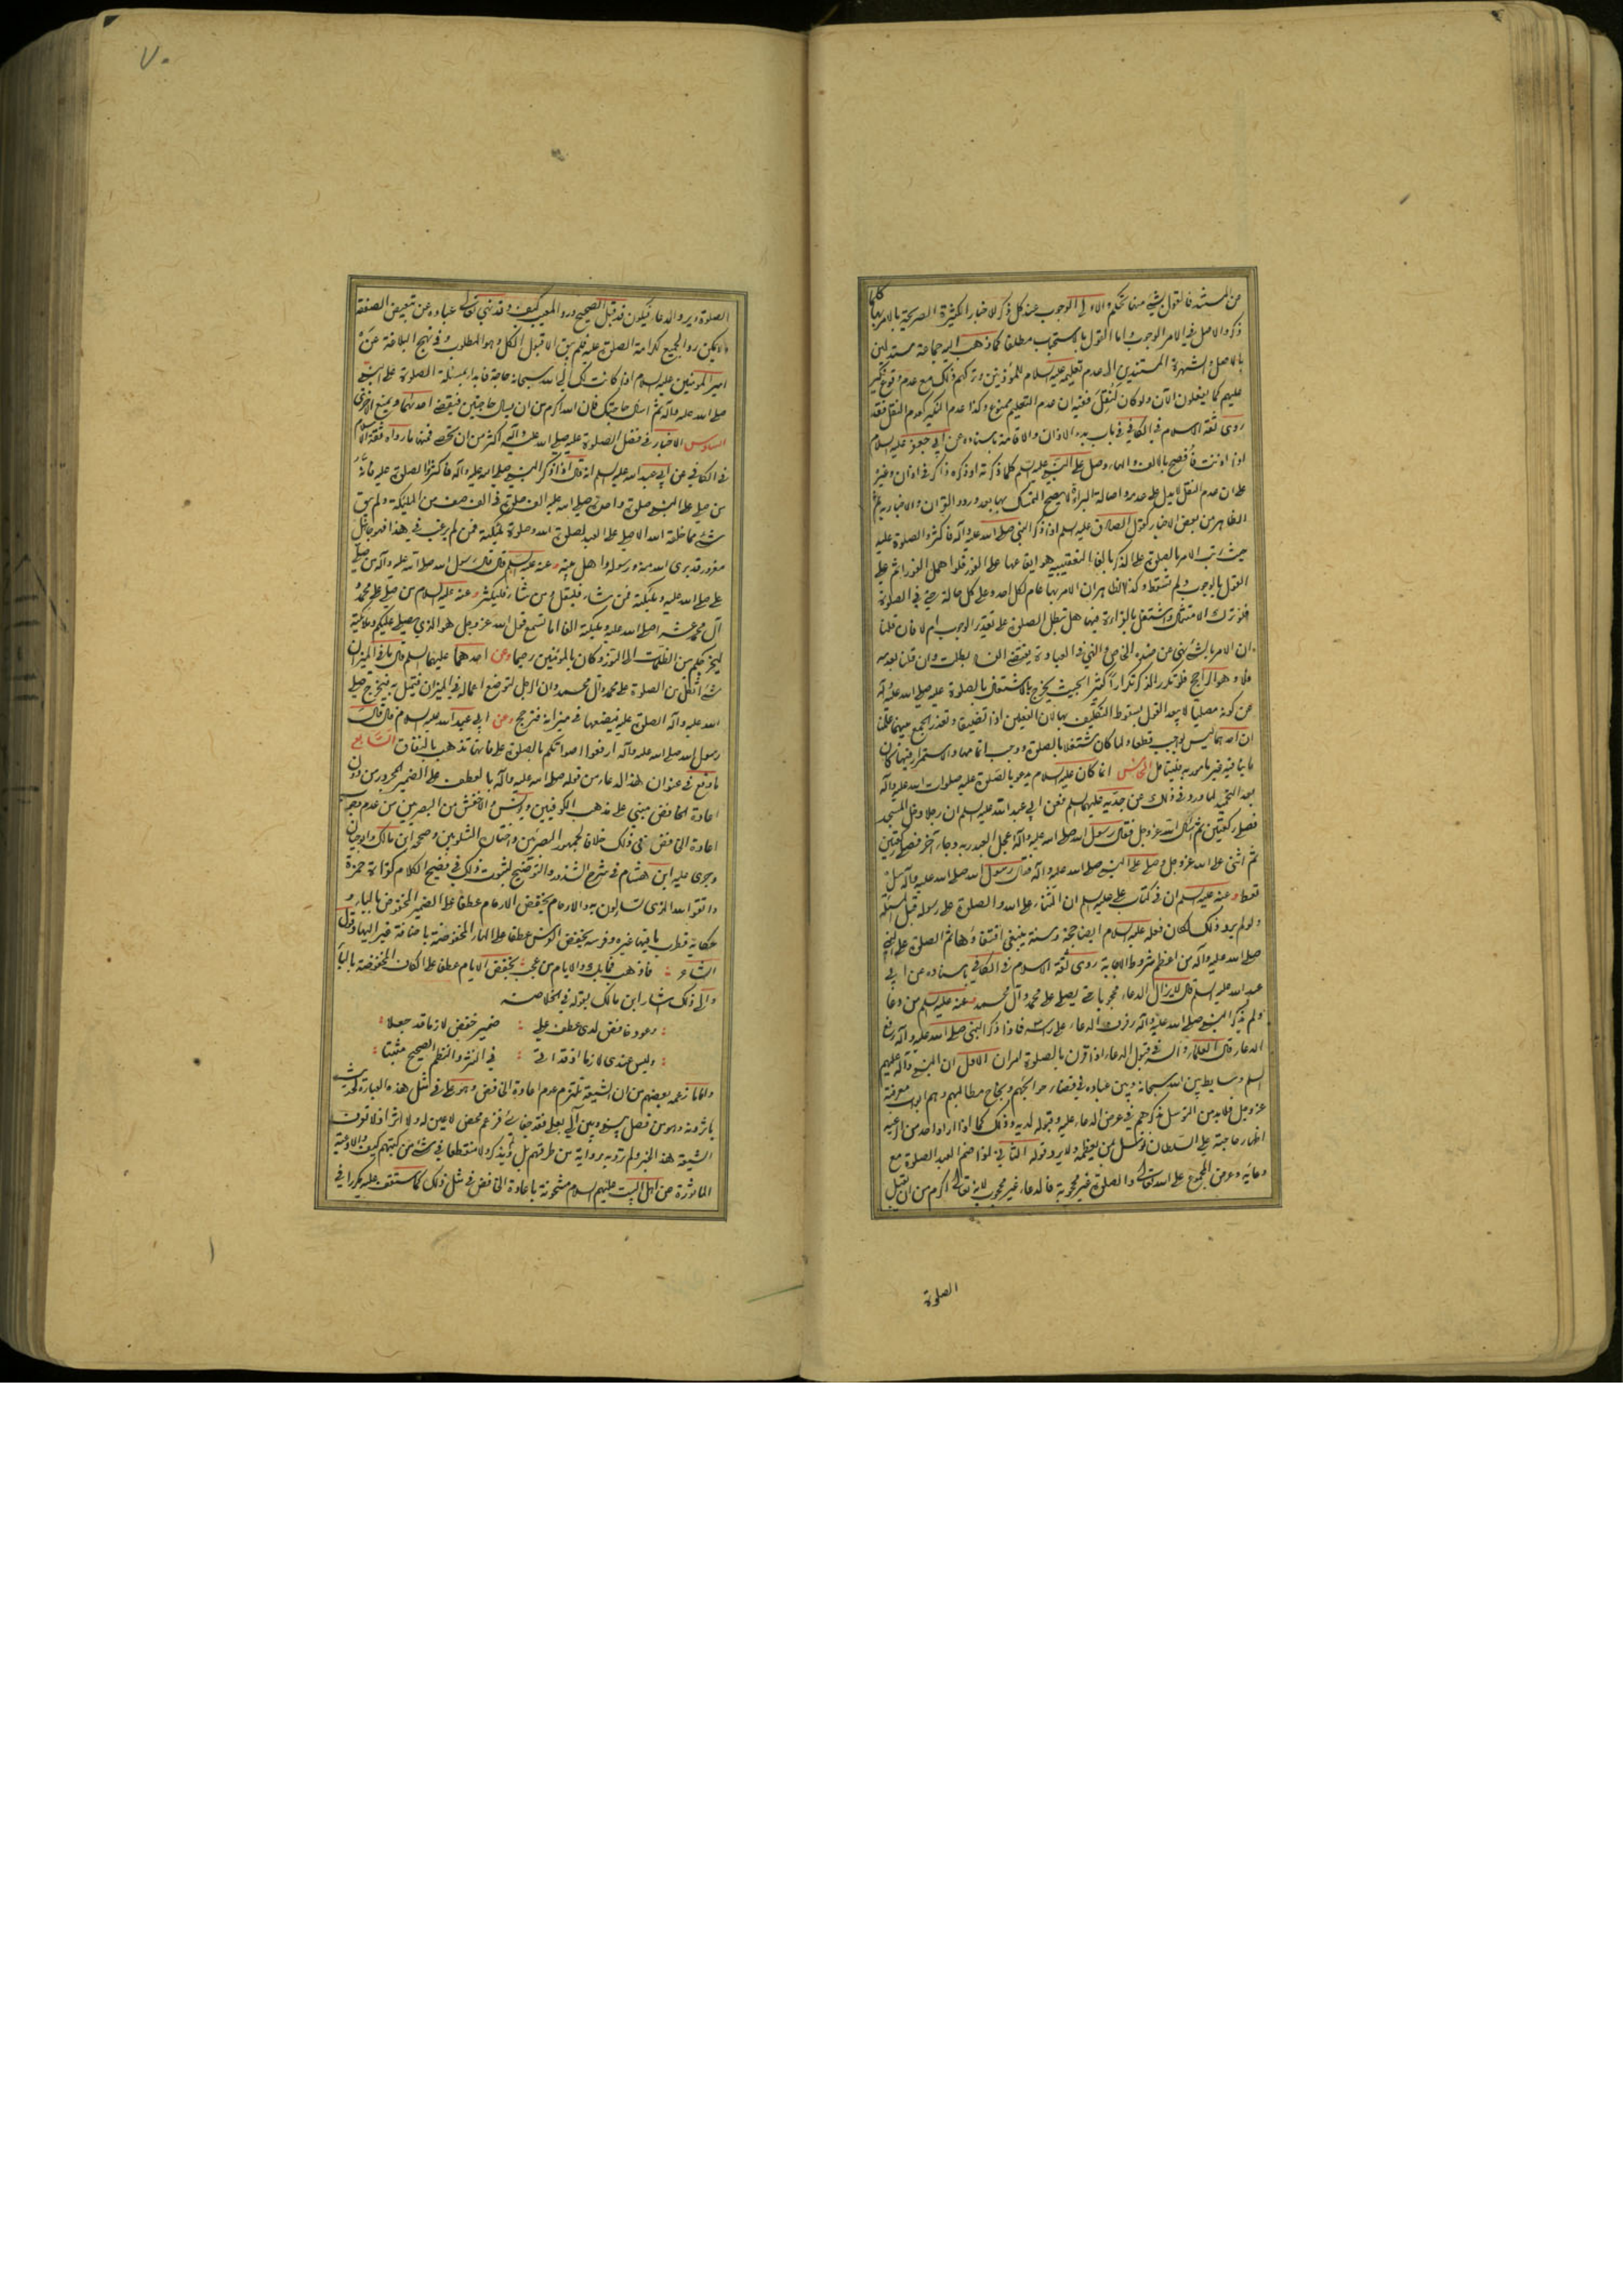 عن المستند فالقول بشئ منها تحكم والاولى الوجوب عند كل ذكر للاخبار الكثيرة الصريحة بالامر بها كلما
ذكر والاصل في الامر الوجوب واما القول بالاستحباب مطلقا كما ذهب اليه جماعة مستدلين
بالاصل والشهرة المستندين الى عدم تعليمه عليه السلام للمؤذنين وتركهم ذلك مع عدم وقوع نكير
عليهم كما يفعلون الآن ولو كان لنقل ففيه ان عدم التعليم ممنوع وكذا عدم النكير كعدم النقل فقد
روى ثقة الاسلام في الكافي في باب بدء الاذان والاقامة باسناده عن ابي جعفر عليه السلام
اذا اذنت فافصح بالالف والهاء وصل على النبي عليه السلم كلما ذكرته او ذكره ذاكر في اذان وغيره
على ان عدم النقل لا يدل على عدمه واصالة البراءة لا يصح التمسك بها بعد ورود القرآن والاخبار به ثم
الظاهر من بعض الاخبار كقول الصادق عليه السلم اذا ذكر النبي صلى الله عليه وآله فاكثروا الصلوة عليه
حيث رتب الامر بالصلوة على الذكر بالفاء التعقيبية هو ايقاعها على الفور فلو اهمل الفور اثم على
القول بالوجوب ولم تسقط وكذا الظاهر ان الامر بها عام لكل احد وعلى كل حالة حتى في الصلوة
فلو ترك الامتثال واشتغل بالقراءة فيها هل تبطل الصلوة على تقدير الوجوب ام لا فان قلنا
ان الامر بالشئ نهي عن ضده الخاص والنهي في العبادة يقتضي الفساد بطلت وان قلنا بعدمه
فلا وهو الراجح فلو تكرر الذكر تكرارا كثيرا بحيث يخرج بالاشتغال بالصلوة عليه صلى الله عليه وآله
عن كونه مصليا لا يبعد القول بسقوط التكليف بها لان الفعلين اذا تضيقا وتعذر الجمع بينهما علمنا
ان احدهما ليس بواجب قطعا ولما كان مشتغلا بالصلوة ووجب اتمامها والاستمرار فيها كان
ما ينافيه غير مامور به فليتامل الخامس انما كان عليه السلام يدعو بالصلوة عليه صلوات الله عليه وآله
بعد التحميد لما ورد في ذلك عن جديه عليهما السلم فعن ابي عبد الله عليه السلم ان رجلا دخل المسجد
فصلى ركعتين ثم سأل الله عز وجل فقال رسول الله صلى الله عليه وآله عجل العبد ربه وجاء آخر فصلى ركعتين
ثم اثنى على الله عز وجل وصلى على النبي صلى الله عليه وآله فقال رسول الله صلى الله عليه وآله سل
تعط وعنه عليه السلم ان في كتاب علي عليه السلم ان الثناء على الله والصلوة على رسوله قبل المسئلة
ولو لم يرد ذلك لكان فعله عليه السلام ايضا حجة وسنة ينبغي اقتفاؤها ثم الصلوة على النبي
صلى الله عليه وآله من اعظم شروط الاجابة روى ثقة الاسلام في الكافي باسناده عن ابي
عبد الله عليه السلم قال لا يزال الدعاء محجوبا حتى يصلى على محمد وآل محمد وعنه عليه السلم من دعا
ولم يذكر النبي صلى الله عليه وآله رفرف الدعاء على راسه فاذا ذكر النبي صلى الله عليه وآله رفع
الدعاء قال العلماء والسر في قبول الدعاء اذا قرن بالصلوة امران الاول ان النبي وآله عليهم
السلم وسايط بين الله سبحانه وبين عباده في قضاء حوائجهم ونجاح مطالبهم وهم ابواب معرفته
عز وجل فلابد من التوسل بذكرهم في عرض الدعاء عليه وقبوله لديه وذلك كما اذا اراد احد من الرعية
اظهار حاجته على السلطان توسل بمن يعظمه ولا يرد قوله الثاني اذا ضم العبد الصلوة مع
دعائه وعرض المجموع على الله تعالى والصلوة غير محجوبة فالدعاء غير محجوب لانه تعالى اكرم من ان يقبل
الصلوة
٧٠
الصلوة ويرد الدعاء فيكون قد قبل الصحيح ورد المعيب كيف وقد نهى تعالى عباده عن تبعيض الصفقة
ولا يمكن رد الجميع لكرامة الصلوة عليه فلم يبق الا قبول الكل وهو المطلوب وفي نهج البلاغة عن
امير المؤمنين عليه السلام اذا كانت لك الى الله سبحانه حاجة فابدا بمسئلة الصلوة على النبي
صلى الله عليه وآله ثم اسال حاجتك فان الله اكرم من ان يسال حاجتين فيقضي احدهما ويمنع الاخرى
السادس الاخبار في فضل الصلوة عليه صلى الله عليه وآله اكثر من ان تحصى فمنها ما رواه ثقة الاسلام
في الكافي عن ابي عبد الله عليه السلم انه قال اذا ذكر النبي صلى الله عليه وآله فاكثروا الصلوة عليه فانه
من صلى على النبي صلوة واحدة صلى الله عليه الف صلوة في الف صف من الملئكة ولم يبق
شئ مما خلقه الله الا صلى على العبد لصلوة الله وصلوة ملئكته فمن لم يرغب في هذا فهو جاهل
مغرور قد برئ الله منه ورسوله واهل بيته وعنه عليه السلم قال قال رسول الله صلى الله عليه وآله من صلى
علي صلى الله عليه وملئكته فمن شاء فليقل ومن شاء فليكثر وعنه عليه السلام من صلى على محمد و
آل محمد عشرا صلى الله عليه وملئكته الفا اما تسمع قول الله عز وجل هو الذي يصلي عليكم وملائكته
ليخرجكم من الظلمات الى النور وكان بالمؤمنين رحيما وعن احدهما عليهما السلم قال ما في الميزان
شئ اثقل من الصلوة على محمد وآل محمد وان الرجل لتوضع اعماله في الميزان فتميل به فيخرج صلى
الله عليه وآله الصلوة عليه فيضعها في ميزانه فترجح وعن ابي عبد الله عليه السلام قال قال
رسول الله صلى الله عليه وآله ارفعوا اصواتكم بالصلوة علي فانها تذهب بالنفاق السابع
ما وقع في عنوان هذا الدعاء من قوله صلى الله عليه وآله بالعطف على الضمير المجرور من دون
اعادة الخافض مبني على مذهب الكوفيين ويونس والاخفش من البصريين من عدم وجوب
اعادة الخافض في ذلك خلافا لجمهور البصريين واختاره الشلوبين وصححه ابن مالك وابو حيان
وجرى عليه ابن هشام في شرح الشذور والتوضيح لثبوت ذلك في فصيح الكلام كقراءة حمزة
واتقوا الله الذي تساءلون به والارحام بخفض الارحام عطفا على الضمير المخفوض بالباء و
حكاية قطرب ما فيها غيره وفرسه بخفض الفرس عطفا على الهاء المخفوضة باضافة غير اليها وقول
الشاعر : فاذهب فما بك والايام من عجب بخفض الايام عطفا على الكاف المخفوضة بالباء
والى ذلك اشار ابن مالك بقوله في الخلاصة
: وعود خافض لدى عطف على : ضمير خفض لازما قد جعلا :
: وليس عندي لازما اذ قد اتى : في النثر والنظم الصحيح مثبتا :
واما ما زعمه بعضهم من ان الشيعة تلتزم عدم اعادة الخافض وهو علي في مثل هذه العبارة لحديث
ياثرونه وهو من فصل بيني وبين آلي بعلى فقد جفاني فزعم محض لا عين له ولا اثر اذ لا تعرف
الشيعة هذا الخبر ولم ترو به رواية من طرقهم بل ولم يذكر ولا منقطعا في شئ من كتبهم كيف والادعية
الماثورة عن اهل البيت عليهم السلام مشحونة باعادة الخافض في مثل ذلك كما ستقف عليه مكررا في